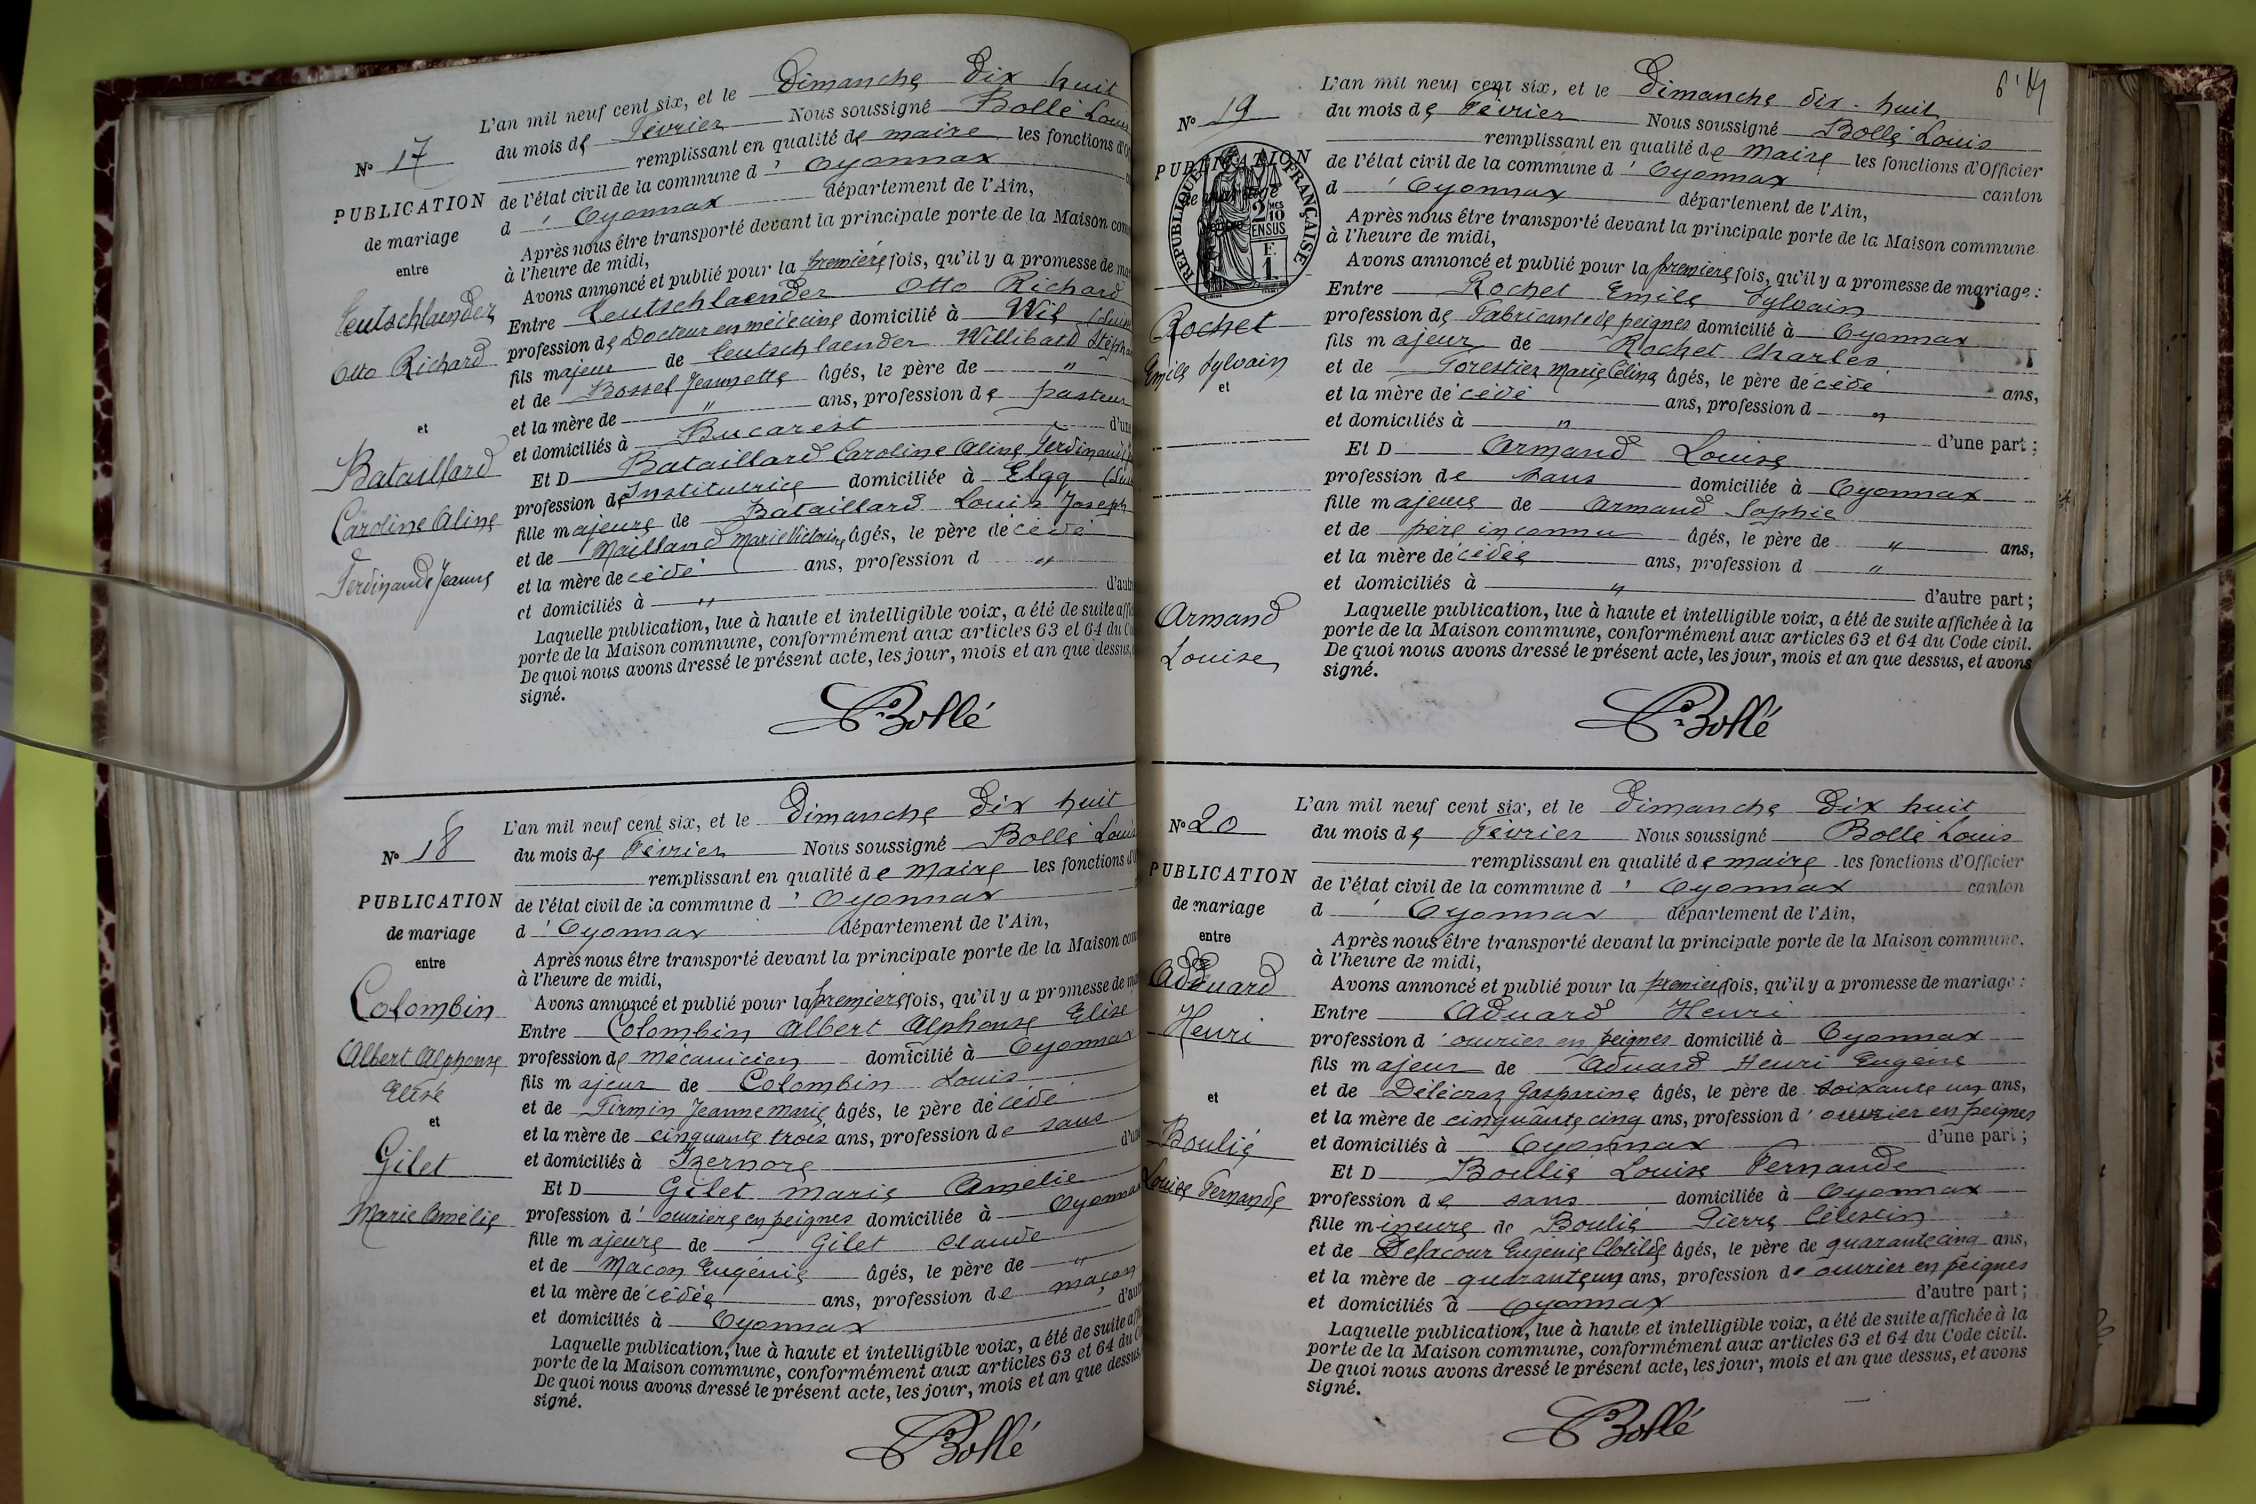 L'an mil neuf cent six, et le Dimanche Dix huit
du mois de Février Nous soussigné Bollé Louis
remplissant en qualité de maire les fonctions d'O
de l'état civil de la commune d' Oyonnax
d' Oyonnax département de l'Ain,
Après nous être transporté devant la principale porte de la Maison com
à l'heure de midi,
Avons annoncé et publié pour la première fois, qu'il y a promesse de ma
Entre Leutschlaender Otto Richard
profession de Docteur en médecine domicilié à Wil (Suis
fils majeur de Leutschlaender Willibald Stéph
et de Bossel Jeannette âgés, le père de "
et la mère de " ans, profession de pasteur
et domiciliés à Bucarest d'un
Et D Bataillard Caroline Aline Ferdinande
profession de Institutrice domiciliée à Elgg (Sui
fille majeure de Bataillard Louis Joseph
et de Mailland Marie Victoire âgés, le père de cédé
et la mère de cédé ans, profession d "
et domiciliés à " d'autr
Laquelle publication, lue à haute et intelligible voix, a été de suite affic
porte de la Maison commune, conformément aux articles 63 et 64 du C
De quoi nous avons dressé le présent acte, les jour, mois et an que dessus,
signé.
Bollé
N° 17
PUBLICATION
de mariage
entre
Leutschlaender
Otto Richard
et
Bataillard
Caroline Aline
Ferdinande Jeanne
L'an mil neuf cent six, et le Dimanche Dix huit
du mois de Février Nous soussigné Bollé Louis
remplissant en qualité de maire les fonctions d'O
de l'état civil de la commune d' Oyonnax
d' Oyonnax département de l'Ain,
Après nous être transporté devant la principale porte de la Maison com
à l'heure de midi,
Avons annoncé et publié pour la première fois, qu'il y a promesse de ma
Entre Colombin Albert Alphonse Elisé
profession de mécanicien domicilié à Oyonnax
fils majeur de Colombin Louis
et de Firmin Jeanne Marie âgés, le père décédé
et la mère de cinquante trois ans, profession de sans
et domiciliés à Izernore d'un
Et D Gilet Marie Amélie
profession d' ouvrière en peignes domiciliée à Oyonnax
fille majeure de Gilet Claude
et de Macon Eugénie âgés, le père de "
et la mère de cédée ans, profession de maçon
et domiciliés à Oyonnax d'aut
Laquelle publication, lue à haute et intelligible voix, a été de suite aff
porte de la Maison commune, conformément aux articles 63 et 64 du C
De quoi nous avons dressé le présent acte, les jour, mois et an que dessus,
signé.
Bollé
N° 18
PUBLICATION
de mariage
entre
Colombin
Albert Alphonse
Elisé
et
Gilet
Marie Amélie
L'an mil neuf cent six, et le Dimanche dix-huit
du mois de Février Nous soussigné Bollé Louis
remplissant en qualité de maire les fonctions d'Officier
de l'état civil de la commune d' Oyonnax canton
d' Oyonnax département de l'Ain,
Après nous être transporté devant la principale porte de la Maison commune
à l'heure de midi,
Avons annoncé et publié pour la première fois, qu'il y a promesse de mariage :
Entre Rochet Emile Sylvain
profession de Fabricant de peignes domicilié à Oyonnax
fils majeur de Rochet Charles
et de Forestier Marie Célina âgés, le père décédé ans,
et la mère de cédé ans, profession d "
et domiciliés à " d'une part ;
Et D Armand Louise
profession de sans domiciliée à Oyonnax
fille majeure de Armand Sophie
et de père inconnu âgés, le père de " ans,
et la mère décédée ans, profession d "
et domiciliés à " d'autre part ;
Laquelle publication, lue à haute et intelligible voix, a été de suite affichée à la
porte de la Maison commune, conformément aux articles 63 et 64 du Code civil.
De quoi nous avons dressé le présent acte, les jour, mois et an que dessus, et avons
signé.
Bollé
N° 19
PUBLICATION
de mariage
RÉPUBLIQUE FRANÇAISE
2 MES 10
EN SUS
F.
1
Rochet
Emile Sylvain
et
Armand
Louise
L'an mil neuf cent six, et le Dimanche Dix huit
du mois de Février Nous soussigné Bollé Louis
remplissant en qualité de maire les fonctions d'Officier
de l'état civil de la commune d' Oyonnax canton
d' Oyonnax département de l'Ain,
Après nous être transporté devant la principale porte de la Maison commune.
à l'heure de midi,
Avons annoncé et publié pour la première fois, qu'il y a promesse de mariage :
Entre Aduard Henri
profession d' ouvrier en peignes domicilié à Oyonnax
fils majeur de Aduard Henri Eugène
et de Délécraz Gasparine âgés, le père de soixante un ans,
et la mère de cinquante cinq ans, profession d' ouvrier en peignes
et domiciliés à Oyonnax d'une part ;
Et D Boulié Louise Fernande
profession de sans domiciliée à Oyonnax
fille mineure de Boulié Pierre Célestin
et de Delacour Eugénie Clotilde âgés, le père de quarante cinq ans,
et la mère de quarante un ans, profession d' ouvrier en peignes
et domiciliés à Oyonnax d'autre part ;
Laquelle publication, lue à haute et intelligible voix, a été de suite affichée à la
porte de la Maison commune, conformément aux articles 63 et 64 du Code civil.
De quoi nous avons dressé le présent acte, les jour, mois et an que dessus, et avons
signé.
Bollé
N° 20
PUBLICATION
de mariage
entre
Aduard
Henri
et
Boulié
Louise Fernande